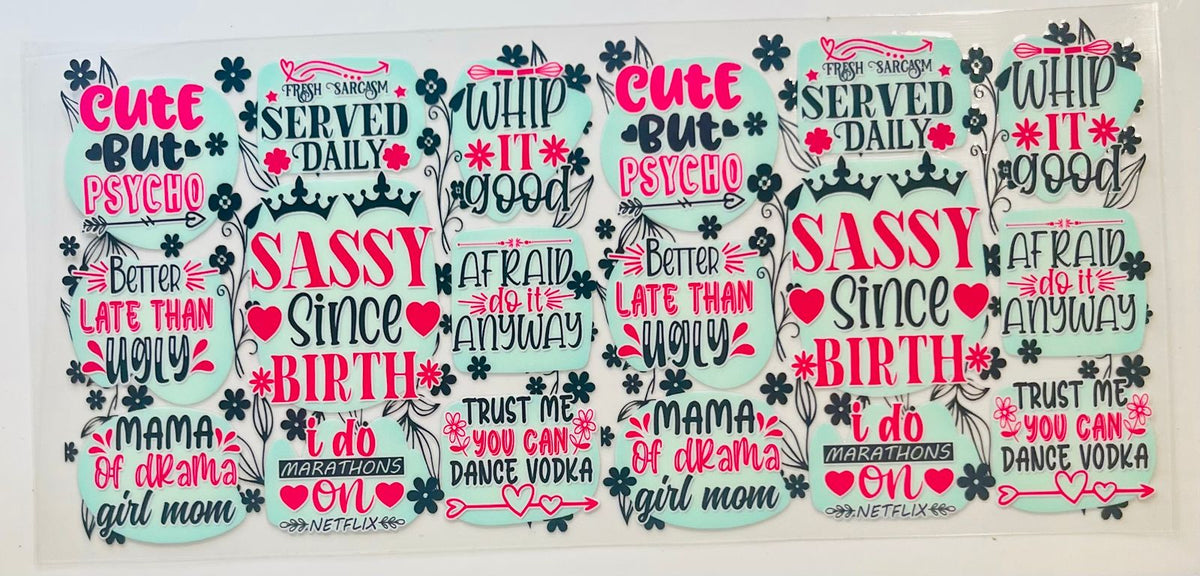 CUtE
BUt
PSYCHO
FRESH SARCASM
SERVED
DAILY
WHIP
IT
good
Better
LATE THAN
UgLy
SASSY
Since
BIRTH
AFRAID
do it
ANYWAY
MAMA
Of dRama
girl mom
i do
MARATHONS
on
NETFLIX
TRUST ME
YOU CAN
DANCE VODKA
CUtE
BUt
PSYCHO
FRESH SARCASM
SERVED
DAILY
WHIP
IT
good
Better
LATE THAN
UgLy
SASSY
Since
BIRTH
AFRAID
do it
ANYWAY
MAMA
Of dRama
girl mom
i do
MARATHONS
on
NETFLIX
TRUST ME
YOU CAN
DANCE VODKA